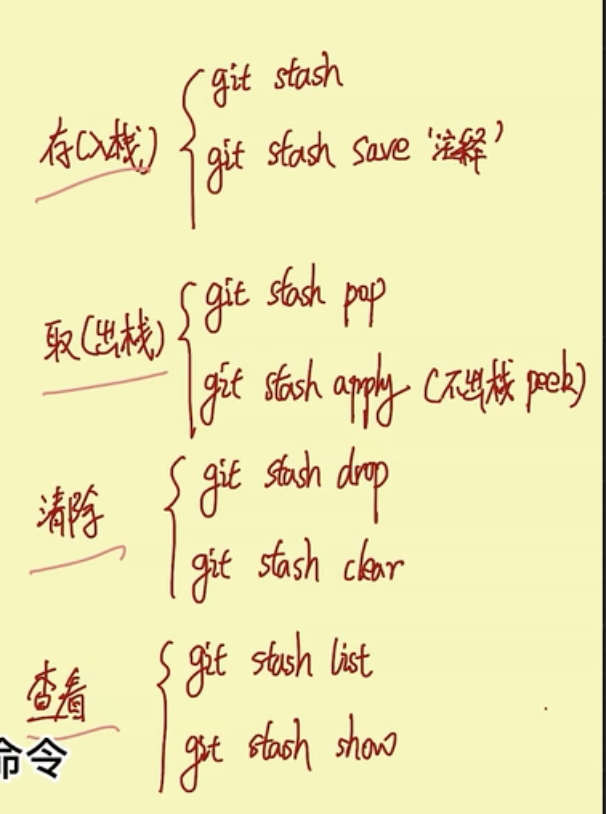 git stash
存(入栈)
git stash save '注释'
git stash pop
取(出栈)
git stash apply (不出栈 peek)
git stash drop
清除
git stash clear
git stash list
查看
git stash show
命令